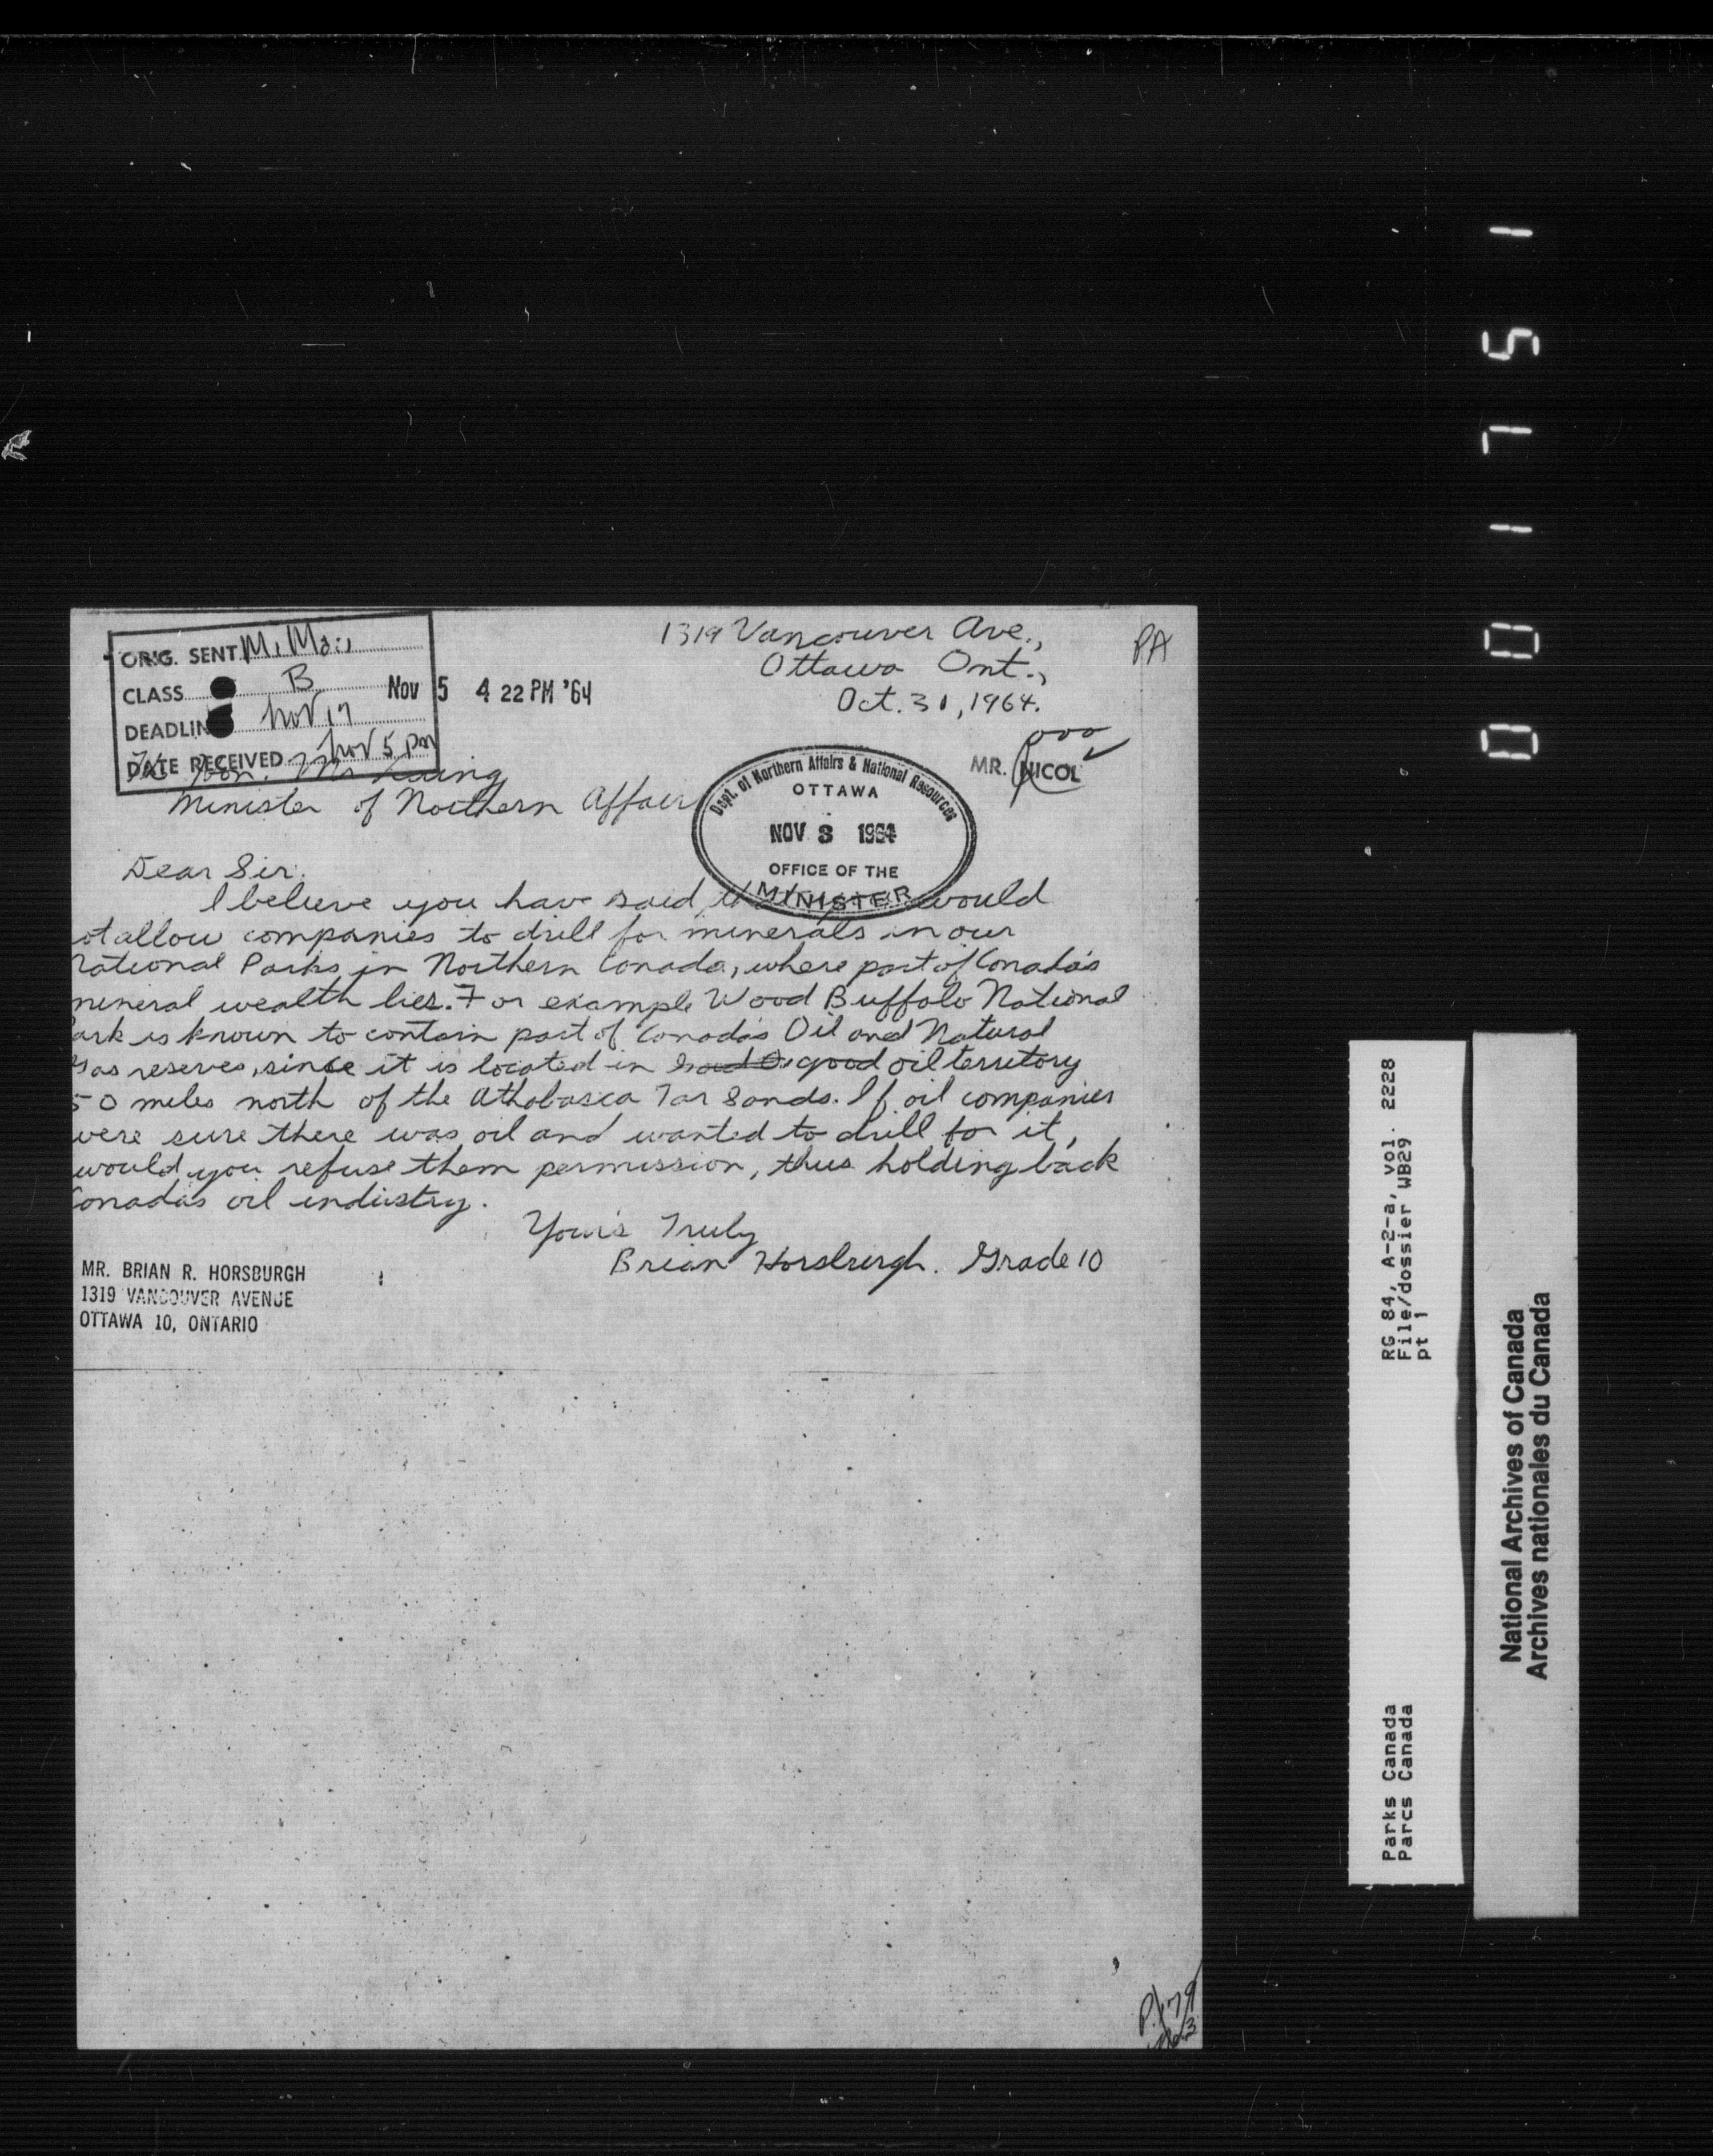 1319 Vancouver Ave.,
Ottawa Ont.,
Oct. 31, 1964.
PA
ORIG. SENT
CLASS B
DEADLIN Nov 17
DATE RECEIVED Nov 5 pm
Nov 5 4 22 PM '64
MR. NICOL
Dept. of Northern Affairs & National Resources
OTTAWA
NOV 3 1964
OFFICE OF THE
MINISTER
Hon. Mr Laing
Minister of Northern Affairs
Dear Sir:
I believe you have said would
ot allow companies to drill for minerals in our
National Parks in Northern Canada, where part of Canada's
mineral wealth lies. For example Wood Buffalo National
ark is known to contain part of Canada's Oil and Natural
Gas reserves, since it is located in good oil territory
50 miles north of the Athabasca Tar Sands. If oil companies
were sure there was oil and wanted to drill for it,
would you refuse them permission, thus holding back
Canada's oil industry.
Your's Truly
Brian Horsburgh. Grade 10
MR. BRIAN R. HORSBURGH
1319 VANCOUVER AVENUE
OTTAWA 10, ONTARIO
001751
RG 84, A-2-a, vol. 2228
File/dossier WB29
pt 1
Parks Canada
Parcs Canada
National Archives of Canada
Archives nationales du Canada